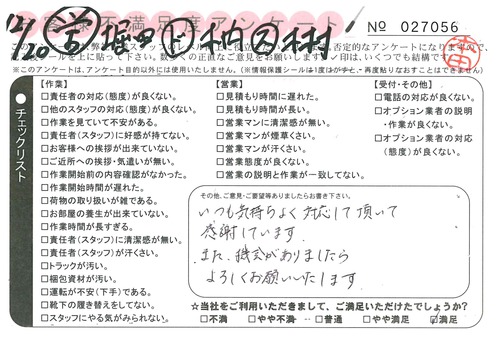 お客様不満足度アンケート
No 027056
12/20 営 堀中 ド 木内 ヌ 木村
※このアンケートは、アンケート目的以外には使用いたしません。
チェックリスト
【作業】
□責任者の対応(態度)が良くない。
□他のスタッフの対応(態度)が良くない。
□作業を見ていて不安がある。
□責任者(スタッフ)に好感が持てない。
□お客様への挨拶が出来ていない。
□ご近所への挨拶・気遣いが無い。
□作業開始前の内容確認がなかった。
□作業開始時間が遅れた。
□荷物の取り扱いが雑である。
□お部屋の養生が出来ていない。
□作業時間が長すぎる。
□責任者(スタッフ)に清潔感が無い。
□責任者(スタッフ)が汗くさい。
□トラックが汚い。
□梱包資材が汚い。
□運転が不安(下手)である。
□靴下の履き替えをしてない。
□スタッフにやる気がみられない。
【営業】
□見積もり時間に遅れた。
□見積もり時間が長い。
□営業マンに清潔感が無い。
□営業マンが煙草くさい。
□営業マンが汗くさい。
□営業態度が良くない。
□営業の説明と作業が一致してない。
【受付・その他】
□電話の対応が良くない。
□オプション業者の説明
・作業が良くない。
□オプション業者の対応
(態度)が良くない。
その他、ご意見・ご要望等ありましたらお書き下さい。
いつも気持ちよく対応して頂いて
感謝しています
また、機会がありましたら
よろしくお願いいたします
☆当社をご利用いただきまして、ご満足いただけたでしょうか?
□不満 □やや不満 □普通 □やや満足 ☑満足